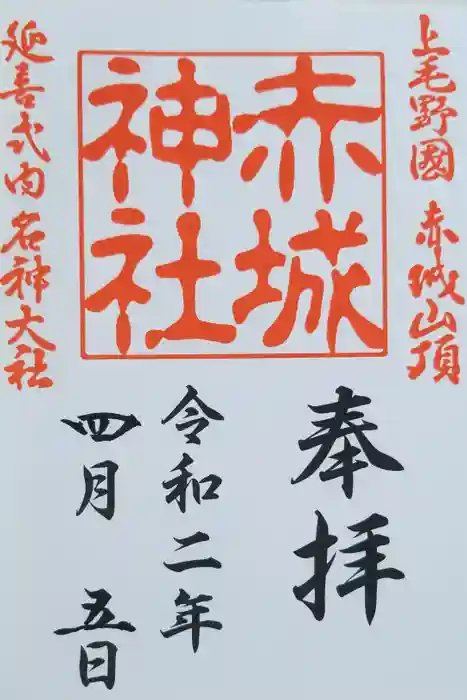 上毛野國 赤城山頂
赤城
神社
延喜式内名神大社
奉拝
令和二年
四月 五日